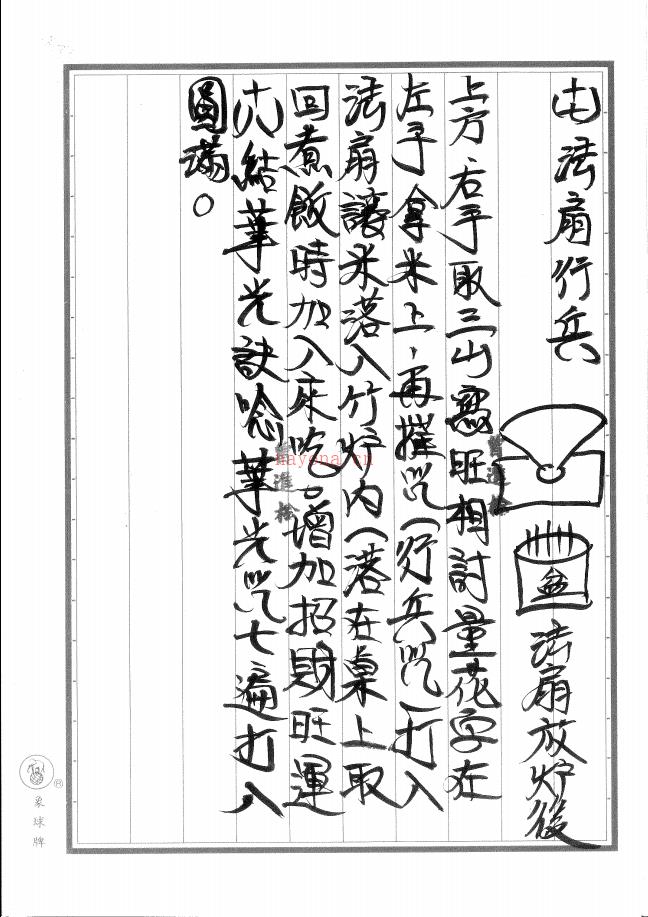 七法扇行兵 盆 法扇放炉後
上方、右手取三山寫旺相討量花字在
左手拿米上，再摧咒（行兵咒）打入
法扇讓米落入竹炉內（落在桌上取
回煮飯時加入來吃。增加招財旺運
六結華光訣唸華光咒七遍打入
圓滿。
nayona.cn
象球牌